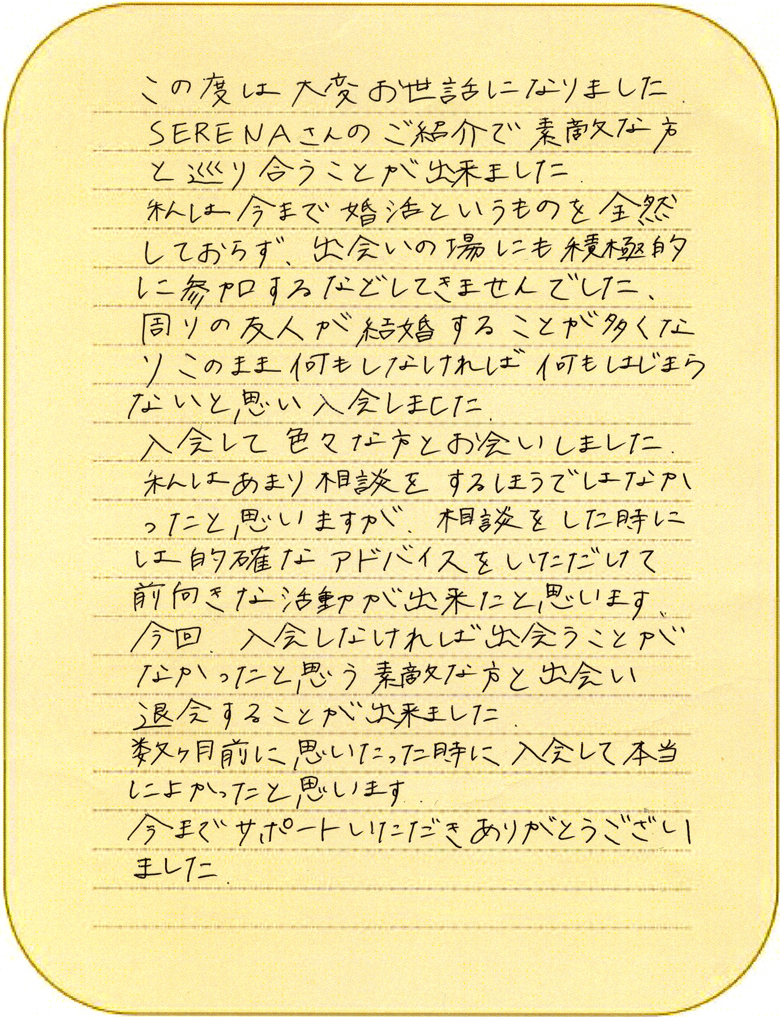 この度は大変お世話になりました.
SERENAさんのご紹介で素敵な方
と巡り合うことが出来ました.
私は今まで婚活というものを全然
しておらず、出会いの場にも積極的
に参加するなどしてきませんでした、
周りの友人が結婚することが多くな
りこのまま何もしなければ何もはじまら
ないと思い入会しました.
入会して色々な方とお会いしました.
私はあまり相談をするほうではなか
ったと思いますが、相談をした時に
は的確なアドバイスをいただけて
前向きな活動が出来たと思います、
今回、入会しなければ出会うことが
なかったと思う素敵な方と出会い
退会することが出来ました.
数ヶ月前に思いたった時に入会して本当
によかったと思います.
今までサポートいただきありがとうござい
ました.